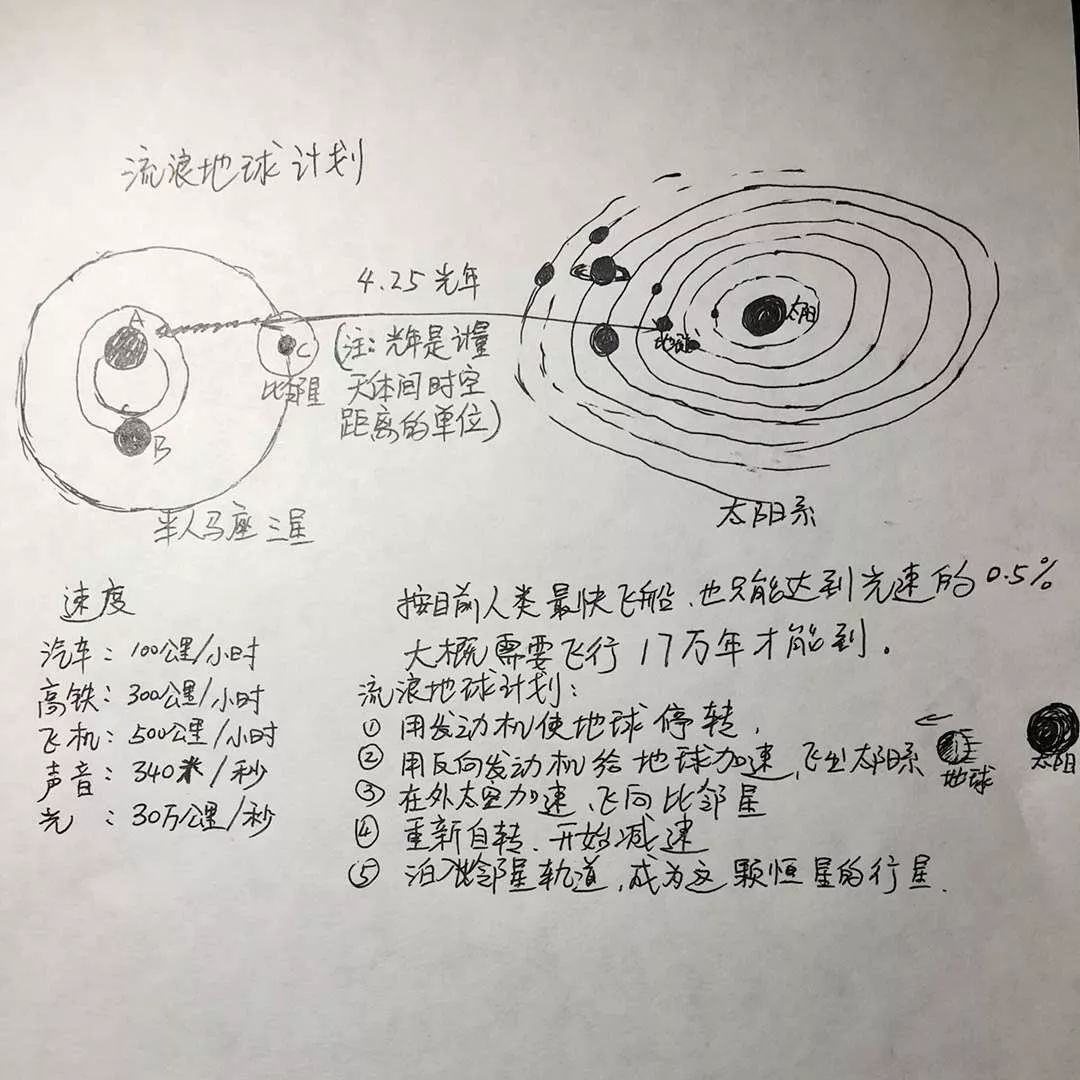 流浪地球计划
4.25光年
(注:光年是计量
天体间时空
距离的单位)
A
B
C
比邻星
半人马座三星
太阳
地球
太阳系
速度
汽车:100公里/小时
高铁:300公里/小时
飞机:500公里/小时
声音:340米/秒
光:30万公里/秒
按目前人类最快飞船、也只能达到光速的0.5%
大概需要飞行17万年才能到。
流浪地球计划:
① 用发动机使地球停转,
② 用反向发动机给地球加速,飞出太阳系
③ 在外太空加速,飞向比邻星
④ 重新自转、开始减速
⑤ 泊入比邻星轨道,成为这颗恒星的行星.
地球
太阳